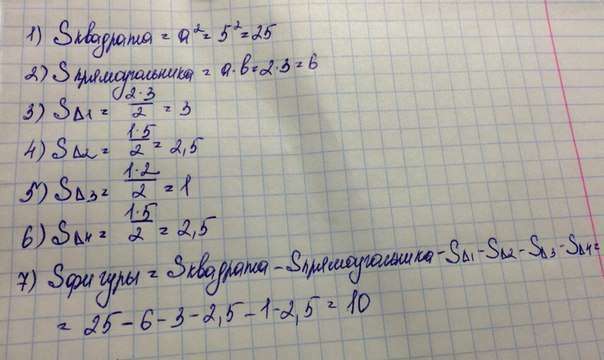 1) Sквадрата = a² = 5² = 25
2) Sпрямоугольника = a·b = 2·3 = 6
3) S△1 = 2·3/2 = 3
4) S△2 = 1·5/2 = 2,5
5) S△3 = 1·2/2 = 1
6) S△4 = 1·5/2 = 2,5
7) Sфигуры = Sквадрата - Sпрямоугольника - S△1 - S△2 - S△3 - S△4 =
= 25 - 6 - 3 - 2,5 - 1 - 2,5 = 10